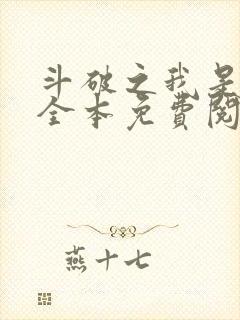 斗破之我是
全本免費閱
燕十七